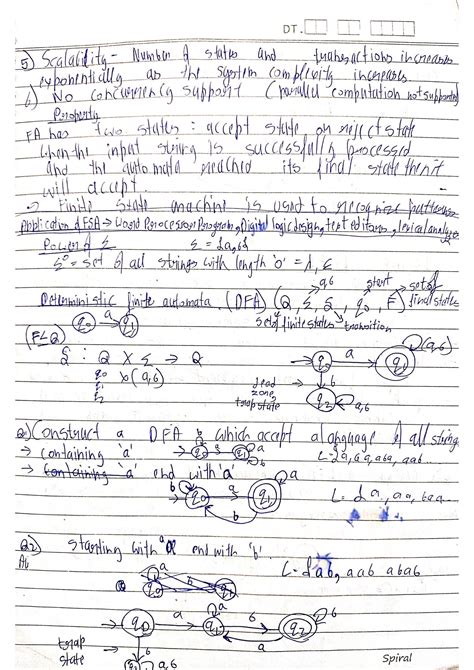 DT.
5) Scalability - Number of states and transactions increases
exponentially as the system complexity increases.
6) No concurrency support (parallel computation not supported)
Property
FA has two states : accept state or reject state
when the input string is successfully processed
and the automata reached its final state then it
will accept.
→ Finite State machine is used to recognize patterns
Application of FSA → Word Processor Program, Digital logic design, text editors, lexical analyzer
Power of Σ Σ = {a,b}
Σ⁰ = set of all strings with length '0' = λ, ε
a,b start set of final states
Deterministic finite automata (DFA) (Q, Σ, δ, q0, F)
q0 a q1 set of finite states transition
(F⊆Q) (a,b)
δ : Q X Σ → Q q0 a q1
q0 x(a,b) b
q1 dead zone, q2 a,b
q2 trap state
Q1) Construct a DFA which accept a language of all string
→ containing 'a' b q0 a q1 a,b L = {a, ba, aba, aab...
→ containing 'a' end with 'a' b q0 a q1 a
b L = {a, aa, baa...
Q2) Starting with 'a' end with 'b'. L = {ab, aab abab
q0 a q1
q0 a q1 b q2 b
a a
trap state b q3 a,b
Spiral